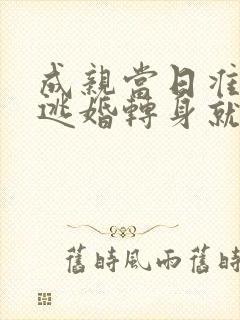 成親當日准
逃婚轉身就
舊時風雨舊時